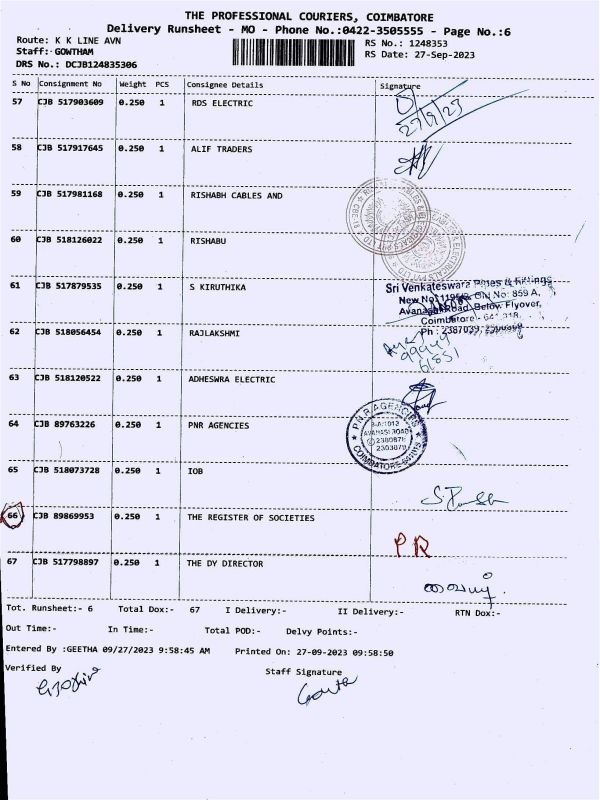 THE PROFESSIONAL COURIERS, COIMBATORE
Delivery Runsheet - MO - Phone No.:0422-3505555 - Page No.:6
Route: K K LINE AVN
RS No.: 1248353
Staff: GOWTHAM
RS Date: 27-Sep-2023
DRS No.: DCJB124835306
S No Consignment No Weight PCS Consignee Details Signature
57 CJB 517903609 0.250 1 RDS ELECTRIC
27/9/23
58 CJB 517917645 0.250 1 ALIF TRADERS
59 CJB 517981168 0.250 1 RISHABH CABLES AND
60 CJB 518126022 0.250 1 RISHABU
61 CJB 517879535 1 S KIRUTHIKA
0.250
Sri Venkateswara Pipes & Fittings
Old No: 859 A,
Avanashi Road, Below Flyover,
Coimbatore
Ph : 2387039,
62 CJB 518056454 0.250 1 RAJLAKSHMI
63 CJB 518120522 0.250 1 ADHESWRA ELECTRIC
64 CJB 89763226 0.250 1 PNR AGENCIES
P.N.R AGENCIES
COIMBATORE
65 CJB 518073728 0.250 1 IOB
66 CJB 89869953 0.250 1 THE REGISTER OF SOCIETIES
PR
67 CJB 517798897 0.250 1 THE DY DIRECTOR
Tot. Runsheet:- 6 Total Dox:- 67 I Delivery:- II Delivery:- RTN Dox:-
Out Time:- In Time:- Total POD:- Delvy Points:-
Entered By :GEETHA 09/27/2023 9:58:45 AM Printed On: 27-09-2023 09:58:50
Verified By Staff Signature